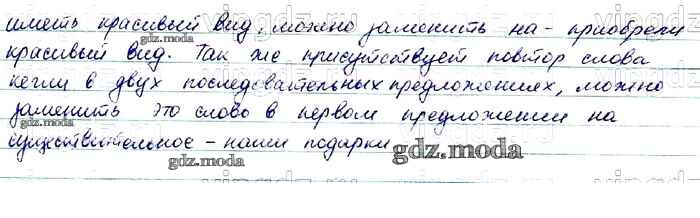 иметь красивый вид, можно заменить на - приобрели
красивый вид. Так же присутствует повтор слова
кегли в двух последовательных предложениях, можно
заменить это слово в первом предложении на
существительное - наши подарки
gdz.moda
gdz.moda
gdz.moda
gdz.moda
gdz.moda